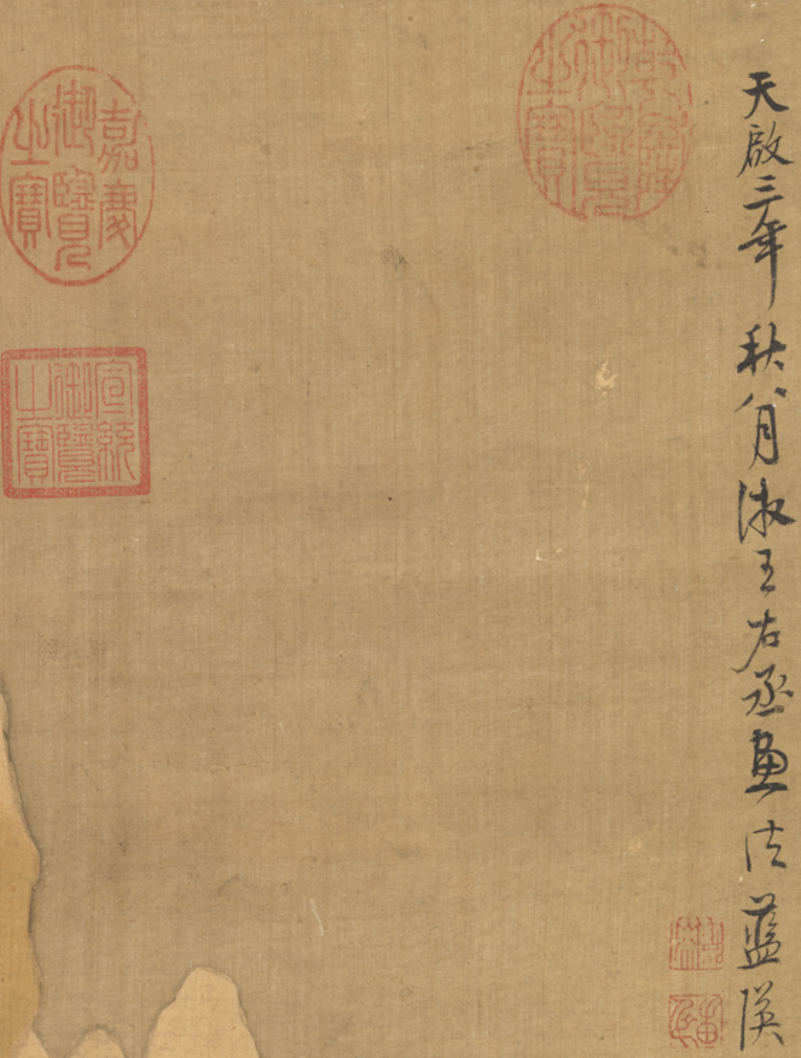 天啟三年秋八月王右丞畫法藍瑛
乾隆
御覽
之寶
嘉慶
御覽
之寶
宣統
御覽
之寶